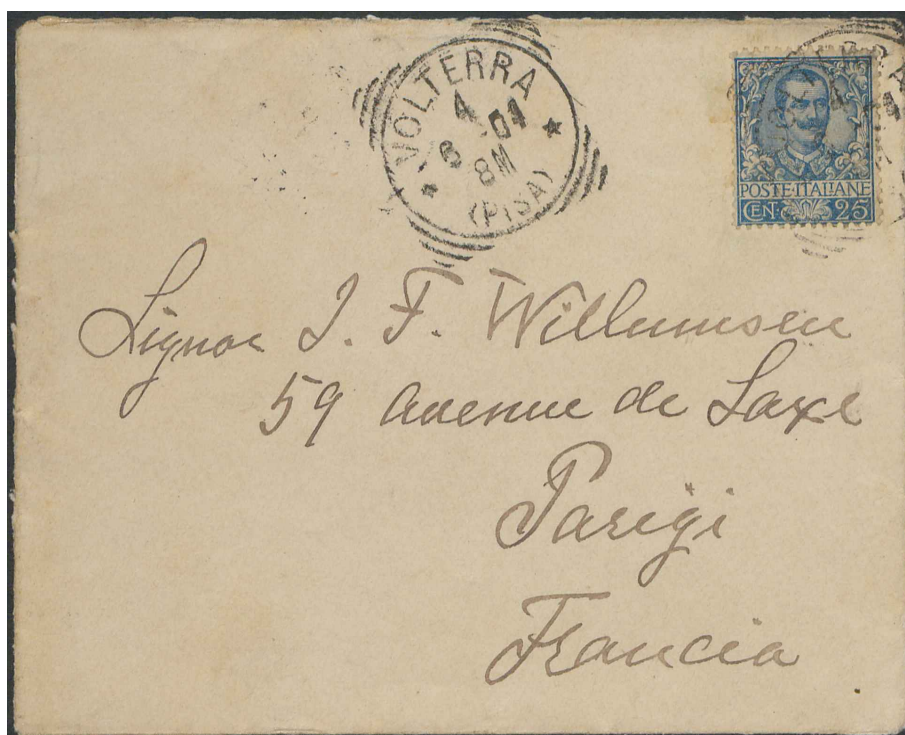 VOLTERRA
4
6 04
8M
(PISA)
POSTE·ITALIANE
CEN. 25
Signor J. F. Willumsen
59 Avenue de Saxe
Parigi
Francia